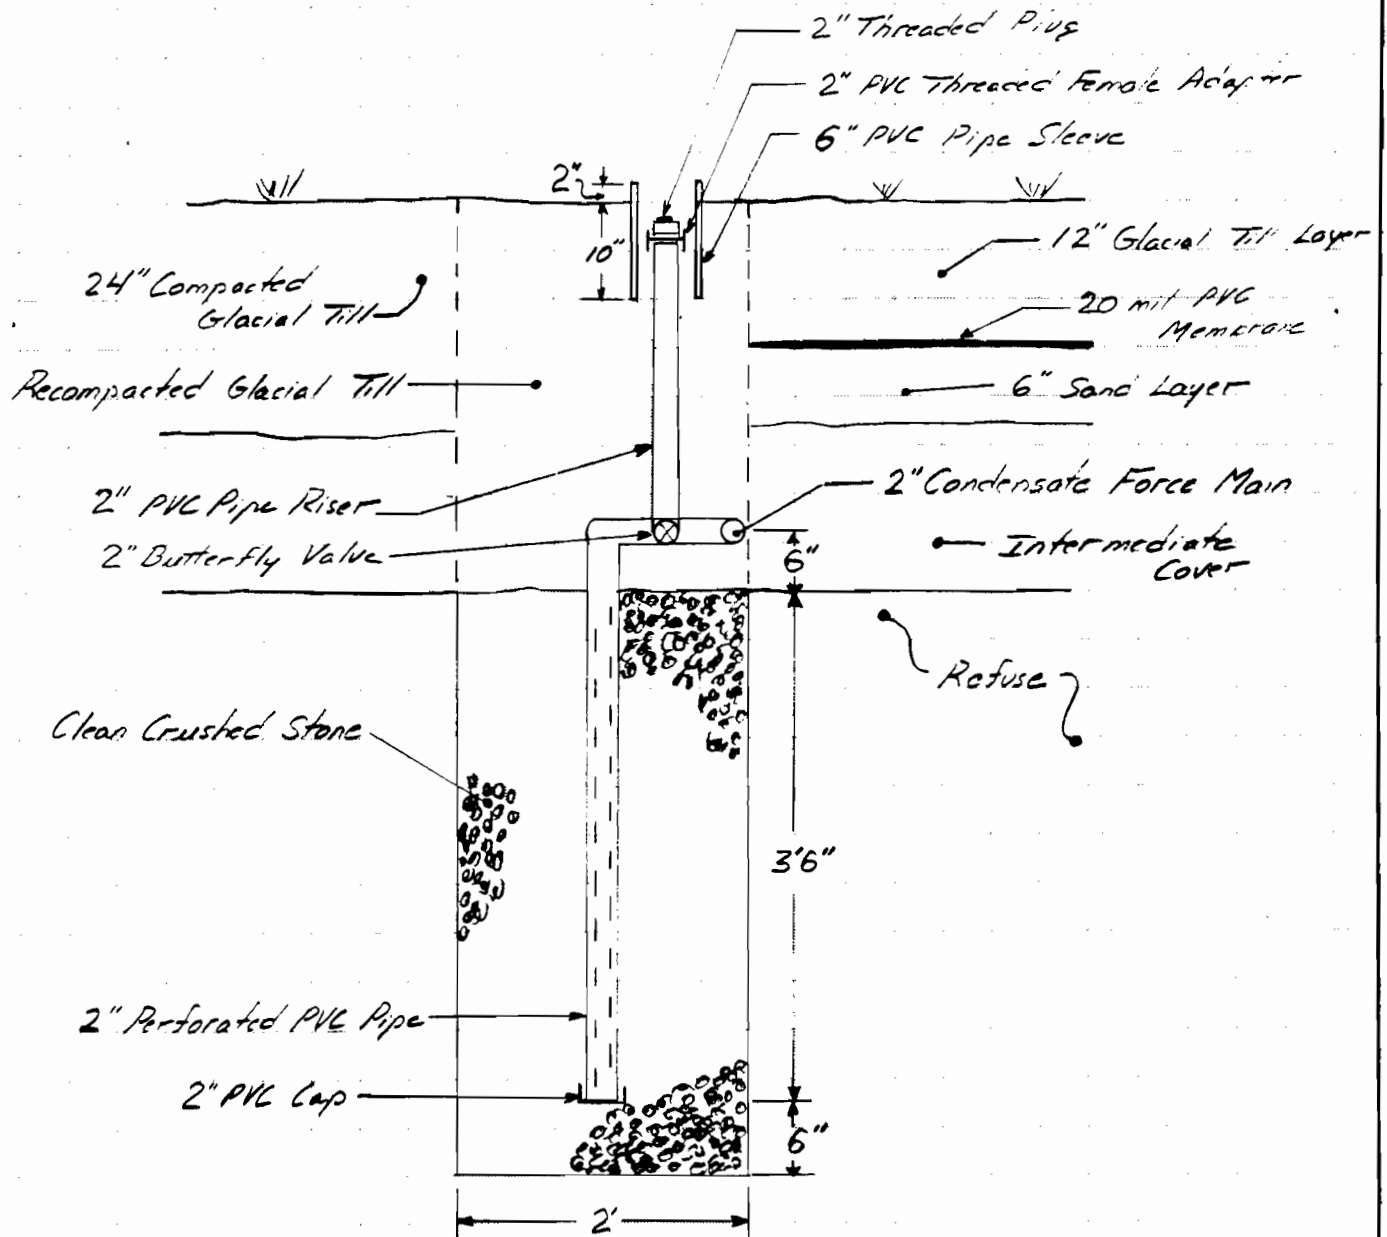 2" Threaded Plug
2" PVC Threaded Female Adapter
6" PVC Pipe Sleeve
2"
10"
12" Glacial Till Layer
24" Compacted
Glacial Till
20 mil PVC
Membrane
Recompacted Glacial Till
6" Sand Layer
2" PVC Pipe Riser
2" Condensate Force Main
2" Butterfly Valve
6"
Intermediate
Cover
Refuse
Clean Crushed Stone
3'6"
2" Perforated PVC Pipe
2" PVC Cap
6"
2'